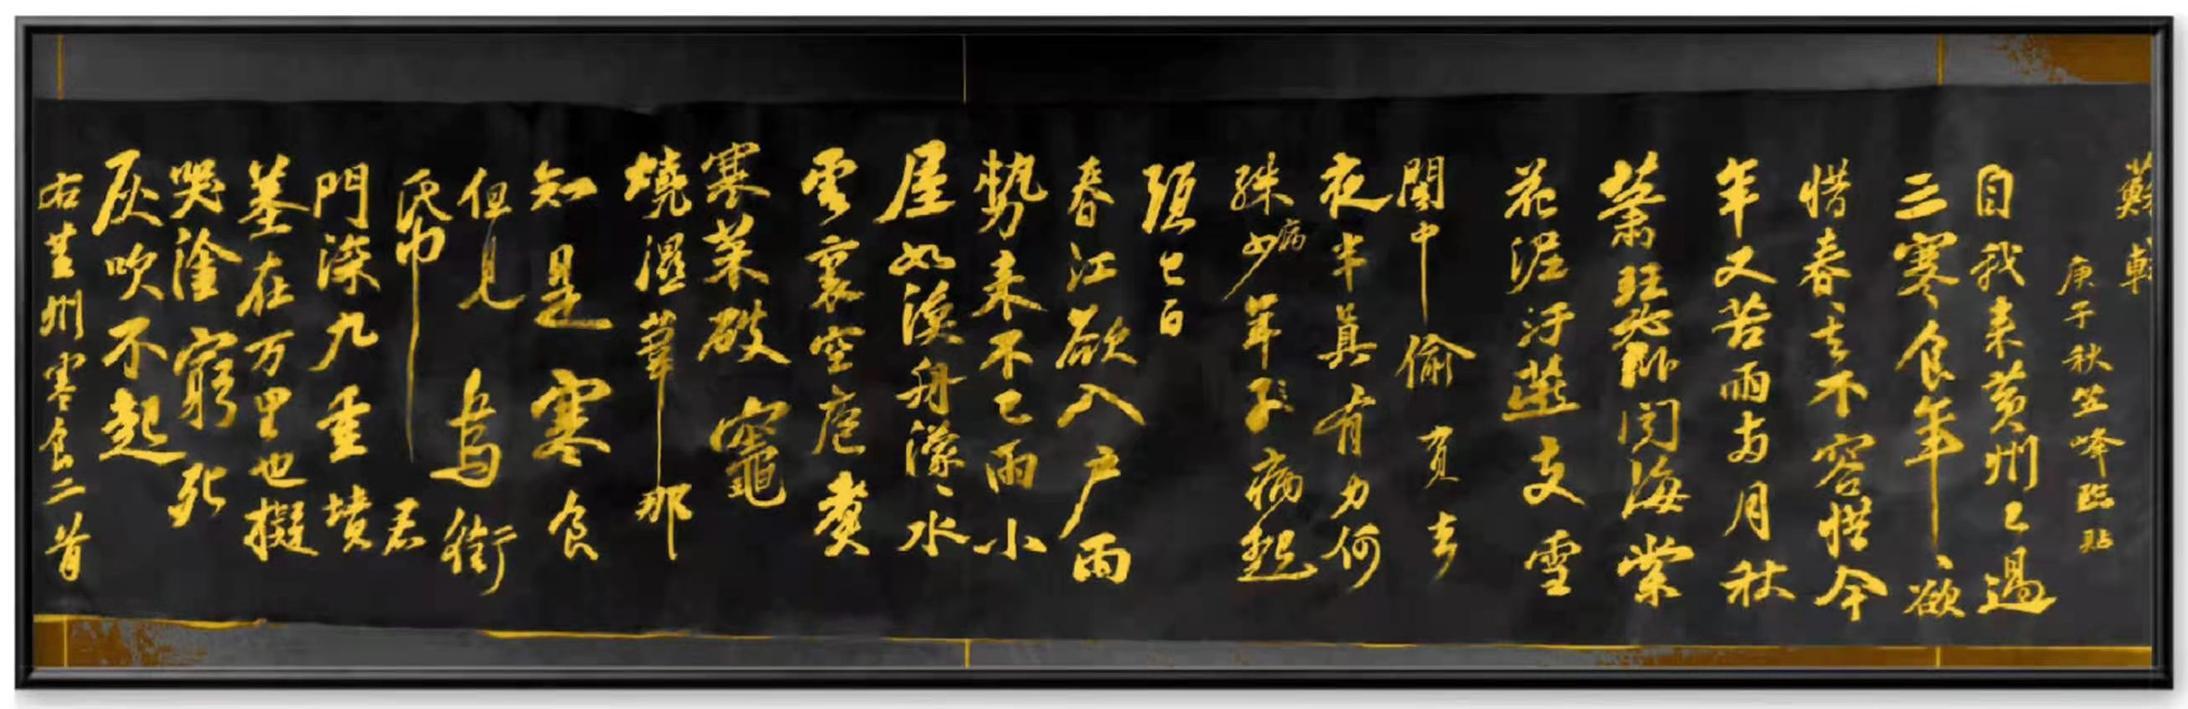 蘇軾
庚子秋笠峰臨贴
自我来黄州已過
三寒食年〻欲
惜春〻去不容惜今
年又苦雨两月秋
蕭瑟卧闻海棠
花泥汙燕支雪
闇中偷負去
夜半真有力何
殊病少年子病起
頭已白
春江欲入户雨
勢来不已雨小
屋如漁舟濛〻水
雲裏空庖煑
寒菜破竈
燒濕葦那
知是寒食
但見烏銜
帋君
門深九重墳
墓在万里也擬
哭塗窮死
灰吹不起
右黄州寒食二首